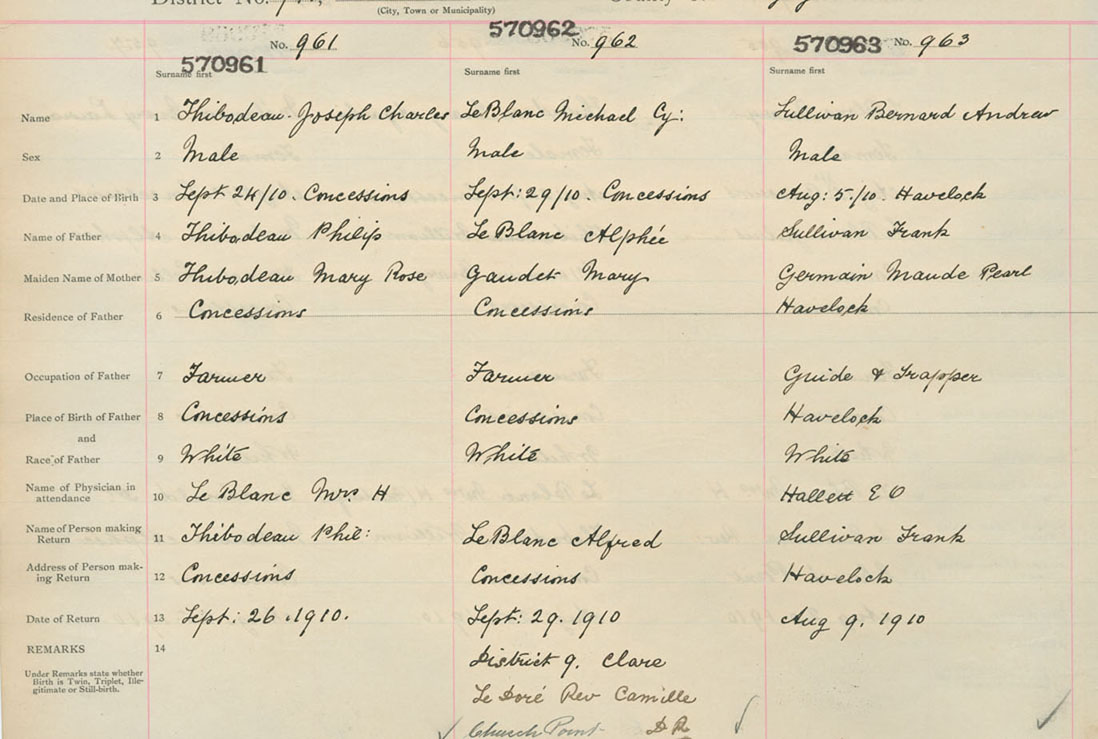 District No.
(City, Town or Municipality)
No. 961
570961
Surname first
570962
No. 962
Surname first
570963
No. 963
Surname first
Name 1 Thibodeau Joseph Charles LeBlanc Michael Cy: Sullivan Bernard Andrew
Sex 2 Male Male Male
Date and Place of Birth 3 Sept 24/10. Concessions Sept: 29/10. Concessions Aug: 5/10. Havelock
Name of Father 4 Thibodeau Philip LeBlanc Alphée Sullivan Frank
Maiden Name of Mother 5 Thibodeau Mary Rose Gaudet Mary Germain Maude Pearl
Residence of Father 6 Concessions Concessions Havelock
Occupation of Father 7 Farmer Farmer Guide & Trapper
Place of Birth of Father 8 Concessions Concessions Havelock
and
Race of Father 9 White White White
Name of Physician in
attendance 10 Le Blanc Mrs H Hallett E O
Name of Person making
Return 11 Thibodeau Phil: LeBlanc Alfred Sullivan Frank
Address of Person mak-
ing Return 12 Concessions Concessions Havelock
Date of Return 13 Sept: 26. 1910. Sept: 29. 1910 Aug 9. 1910
REMARKS 14
Under Remarks state whether
Birth is Twin, Triplet, Ille-
gitimate or Still-birth.
District 9. Clare
Le Doré Rev Camille
Church Point D R